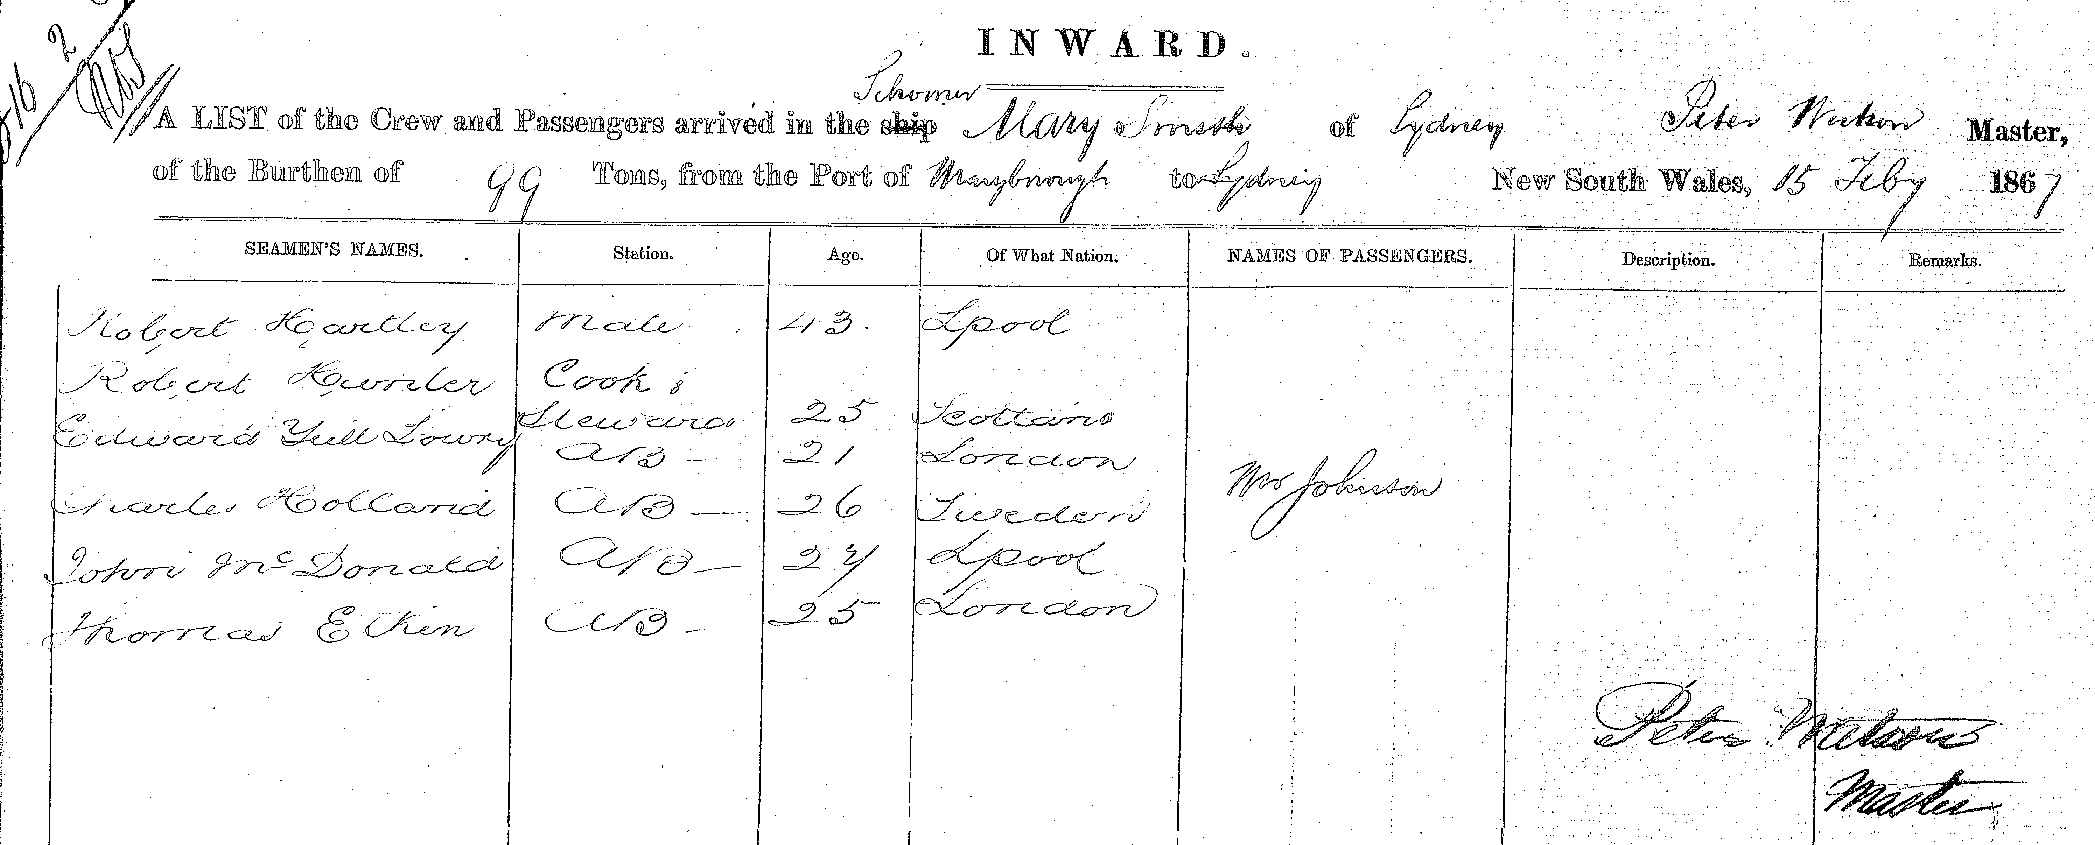 INWARD.
Schooner
A LIST of the Crew and Passengers arrived in the ship Mary Smith of Sydney Peter Master,
of the Burthen of 99 Tons, from the Port of Maryborough to Sydney New South Wales, 15 Feby 1867
SEAMEN'S NAMES. Station. Age. Of What Nation. NAMES OF PASSENGERS. Description. Remarks.
Robert Hartley Mate 43. Lpool
Robert Hunter Cook &
Steward 25 Scotland
Edward Yuill Lowry AB - 21 London
Mr Johnson
Charles Holland AB - 26 Sweden
John McDonald AB - 27 Lpool
Thomas Elkin AB - 25 London
Peter
Master